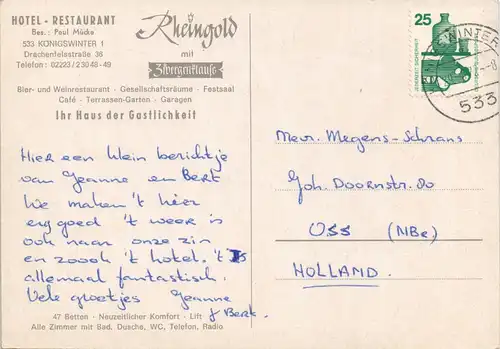 HOTEL - RESTAURANT
Bes.: Paul Mücke
533 KÖNIGSWINTER 1
Drachenfelsstraße 36
Telefon: 02223/23048-49
Rheingold
mit
Zwergenklause
Bier- und Weinrestaurant · Gesellschaftsräume · Festsaal
Café · Terrassen-Garten · Garagen
Ihr Haus der Gastlichkeit
Hier een klein berichtje
van Jeanne en Bert
We maken 't hier
erg goed 't weer is
ook naar onze zin
en zoook 't hotel. 't is
allemaal fantastisch.
Vele groetjes Jeanne
& Bert.
47 Betten · Neuzeitlicher Komfort · Lift
Alle Zimmer mit Bad, Dusche, WC, Telefon, Radio
25
JEDERZEIT SICHERHEIT
533
Mevr. Megens-Schrans
Joh. Doornstr. 80
OSS (NBr)
HOLLAND.